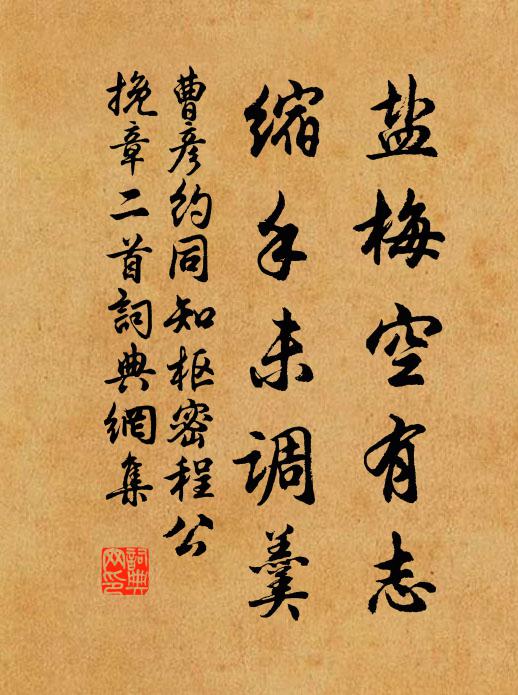 盐梅空有志
缩手未调羹
曹彦约同知枢密程公
挽章二首詞典網集
詞典网印